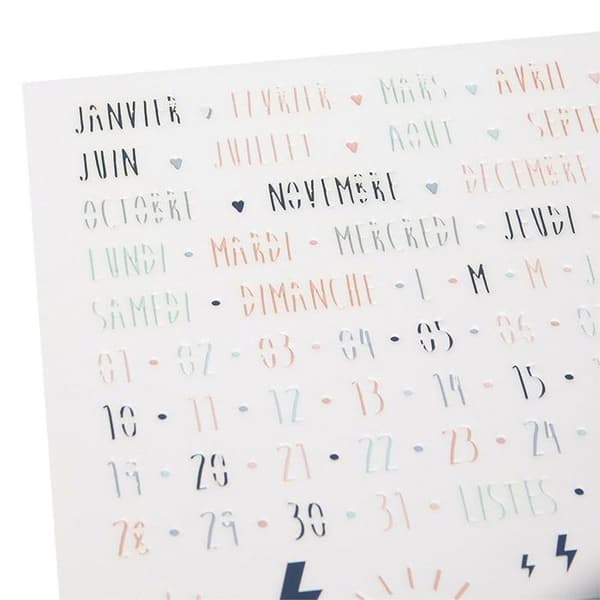 JANVIER FÉVRIER MARS AVRIL
JUIN JUILLET AOUT SEPTE
OCTOBRE NOVEMBRE DECEMBRE
LUNDI MARDI MERCREDI JEUDI
SAMEDI DIMANCHE L M M J
01 02 03 04 05 06
10 11 12 13 14 15
19 20 21 22 23 24
28 29 30 31 LISTES